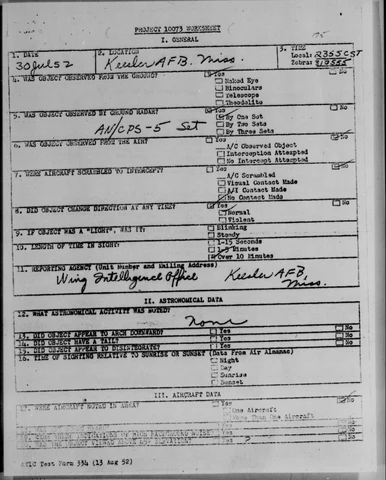 PROJECT 10073 WORKSHEET
I. GENERAL
1. DATE
30 Jul 52
2. LOCATION
Keesler AFB. Miss.
3. TIME
Local: 2355 CST
Zebra:
4. WAS OBJECT OBSERVED FROM THE GROUND? Yes No
Naked Eye
Binoculars
Telescope
Theodolite
5. WAS OBJECT OBSERVED BY GROUND RADAR? Yes No
By One Set
By Two Sets
By Three Sets
AN/CPS-5 Set
6. WAS OBJECT OBSERVED FROM THE AIR? Yes No
A/C Observed Object
Interception Attempted
No Intercept Attempted
7. WERE AIRCRAFT SCRAMBLED TO INTERCEPT? Yes No
A/C Scrambled
Visual Contact Made
A/I Contact Made
No Contact Made
8. DID OBJECT CHANGE DIRECTION AT ANY TIME? Yes No
Normal
Violent
9. IF OBJECT WAS A "LIGHT", WAS IT: Blinking
Steady
10. LENGTH OF TIME IN SIGHT: 1-15 Seconds
Minutes
Over 10 Minutes
11. REPORTING AGENCY (Unit Number and Mailing Address)
Wing Intelligence Office Keesler AFB, Miss.
II. ASTRONOMICAL DATA
12. WHAT ASTRONOMICAL ACTIVITY WAS NOTED?
None
13. DID OBJECT APPEAR TO ARCH DOWNWARD? Yes No
14. DID OBJECT HAVE A TAIL? Yes No
15. DID OBJECT APPEAR TO DISINTEGRATE? Yes No
16. TIME OF SIGHTING RELATIVE TO SUNRISE OR SUNSET (Data From Air Almanac)
Night
Day
Sunrise
Sunset
III. AIRCRAFT DATA
17. WERE AIRCRAFT NOTED IN AREA? Yes No
One Aircraft
More Than One Aircraft
ATIC Test Form 334 (13 Aug 52)